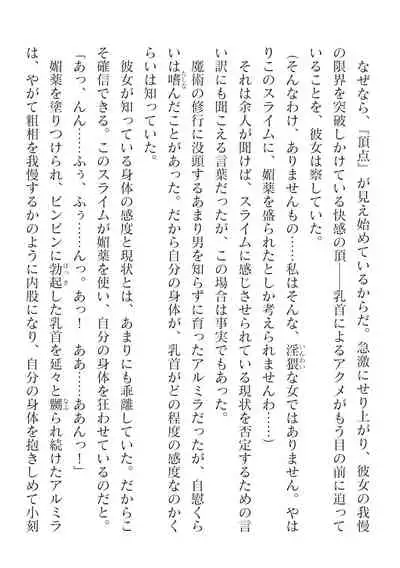 なぜなら、『頂点』が見え始めているからだ。急激にせり上がり、彼女の我慢
の限界を突破しかけている快感の頂――乳首によるアクメがもう目の前に迫って
いることを、彼女は察していた。
（そんなわけ、ありませんもの……私はそんな、淫猥な女ではありません。やは
りこのスライムに、媚薬を盛られたとしか考えられませんわ……）
それは余人が聞けば、スライムに感じさせられている現状を否定するための言
い訳にも聞こえる言葉だったが、この場合は事実でもあった。
魔術の修行に没頭するあまり男を知らずに育ったアルミラだったが、自慰くら
いは嗜んだことがあった。だから自分の身体が、乳首がどの程度の感度なのかく
らいは知っていた。
彼女が知っている身体の感度と現状とは、あまりにも乖離していた。だからこ
そ確信できる。このスライムが媚薬を使い、自分の身体を狂わせているのだと。
「あっ、んん……ふぅ、ふぅ……んっ。あっ！　ああ……ああんっ！」
媚薬を塗りつけられ、ビンビンに勃起した乳首を延々と嬲られ続けたアルミラ
は、やがて粗相を我慢するかのように内股になり、自分の身体を抱きしめて小刻